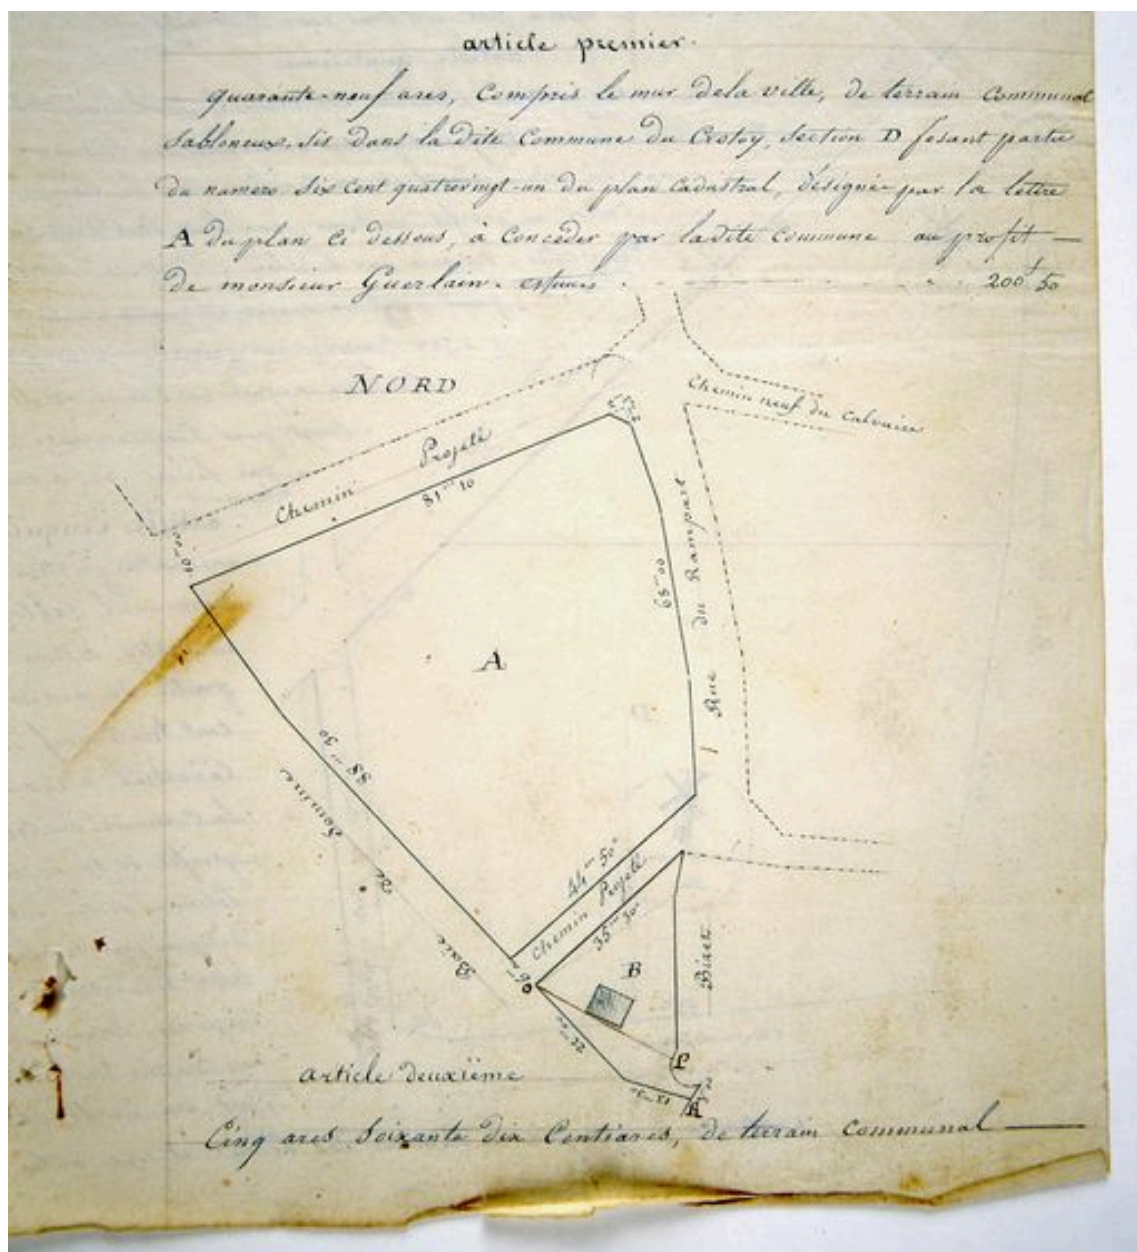 article premier.
quarante-neuf ares, Compris le mur dela ville, de terrain communal
Sabloneux, sis dans la dite Commune du Crotoy, Section D fesant partie
du numero Six cent quatrevingt-un du plan cadastral, désignée par la lettre
A du plan ci dessous, à Concéder par ladite commune au profit
de monsieur Guerlain. 200 f 50
NORD
Chemin neuf du Calvaire
Chemin Projeté
81 m 10
10 m 00
68 m 00
Rue du Rampart
A
88 m 30
Baie de Somme
44 m 50
Chemin Projeté
35 m 30
6 m
B
Bizet
22 m 00
L
article deuxième
Cinq ares Soixante dix Centiares, de terrain Communal